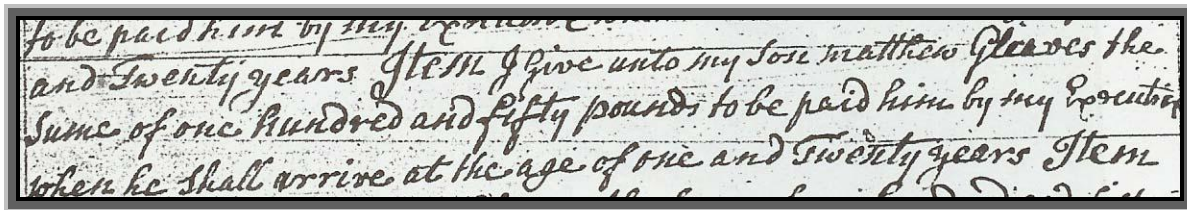 to be paid him by my
and Twenty years Item I Give unto my Son matthew Gleaves the
Sume of one hundred and fifty pounds to be paid him by my
when he Shall arrive at the age of one and Twenty years Item